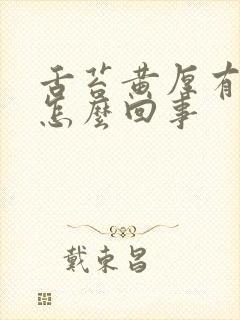 舌苔黄厚有
怎麼回事
戴東昌